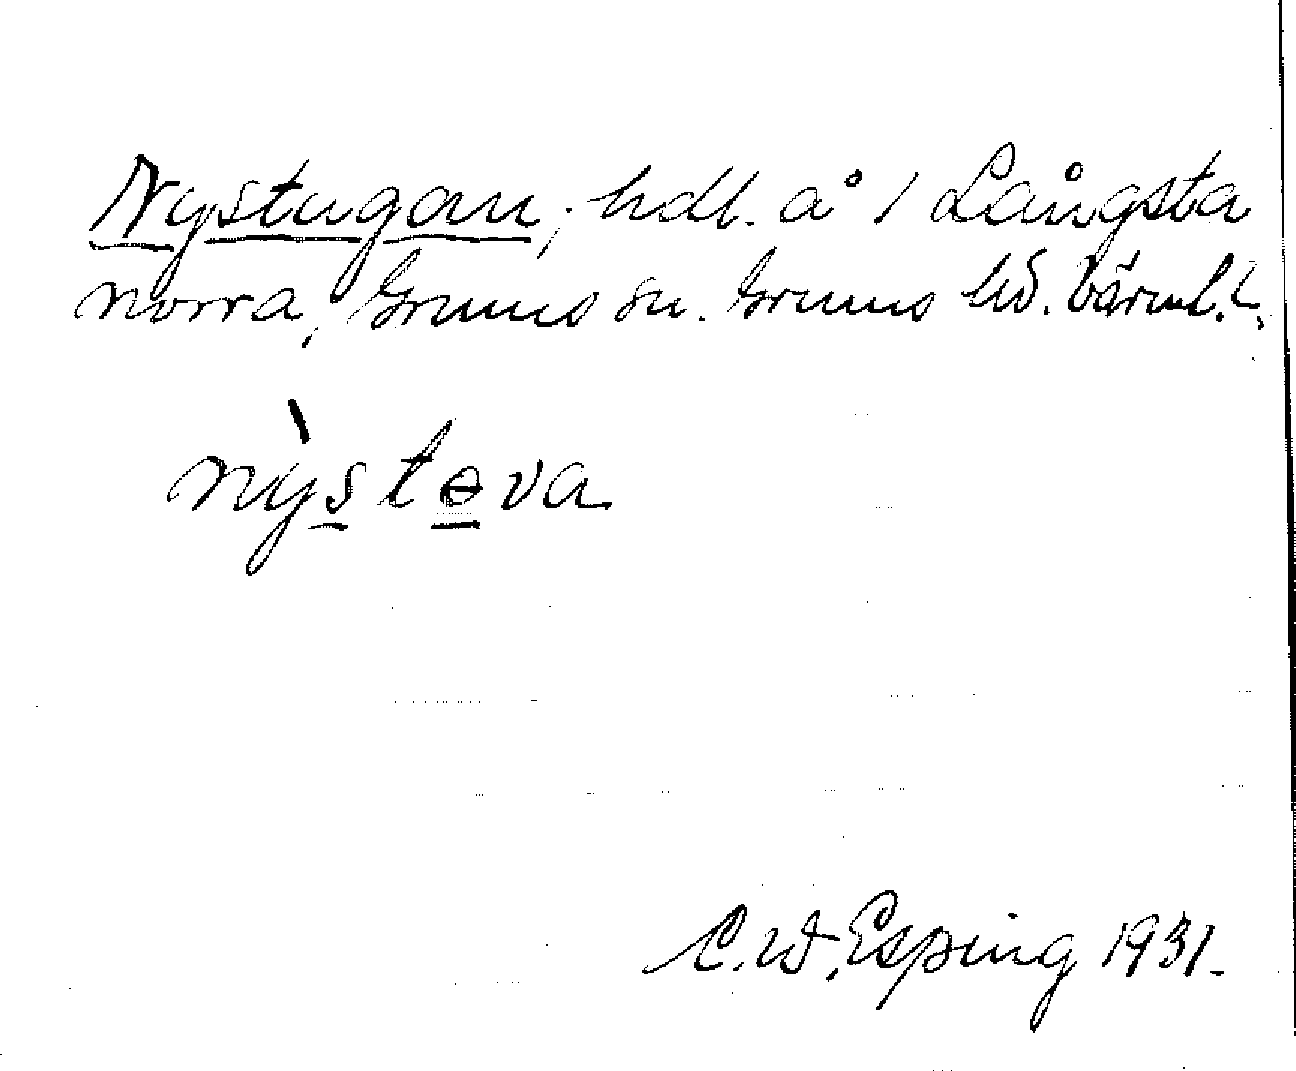 Nystugan, hdl. å 1 Långsta
norra, Grums sn. Grums hd. Värml. l.
nỳsteva
C.W. Esping 1931.